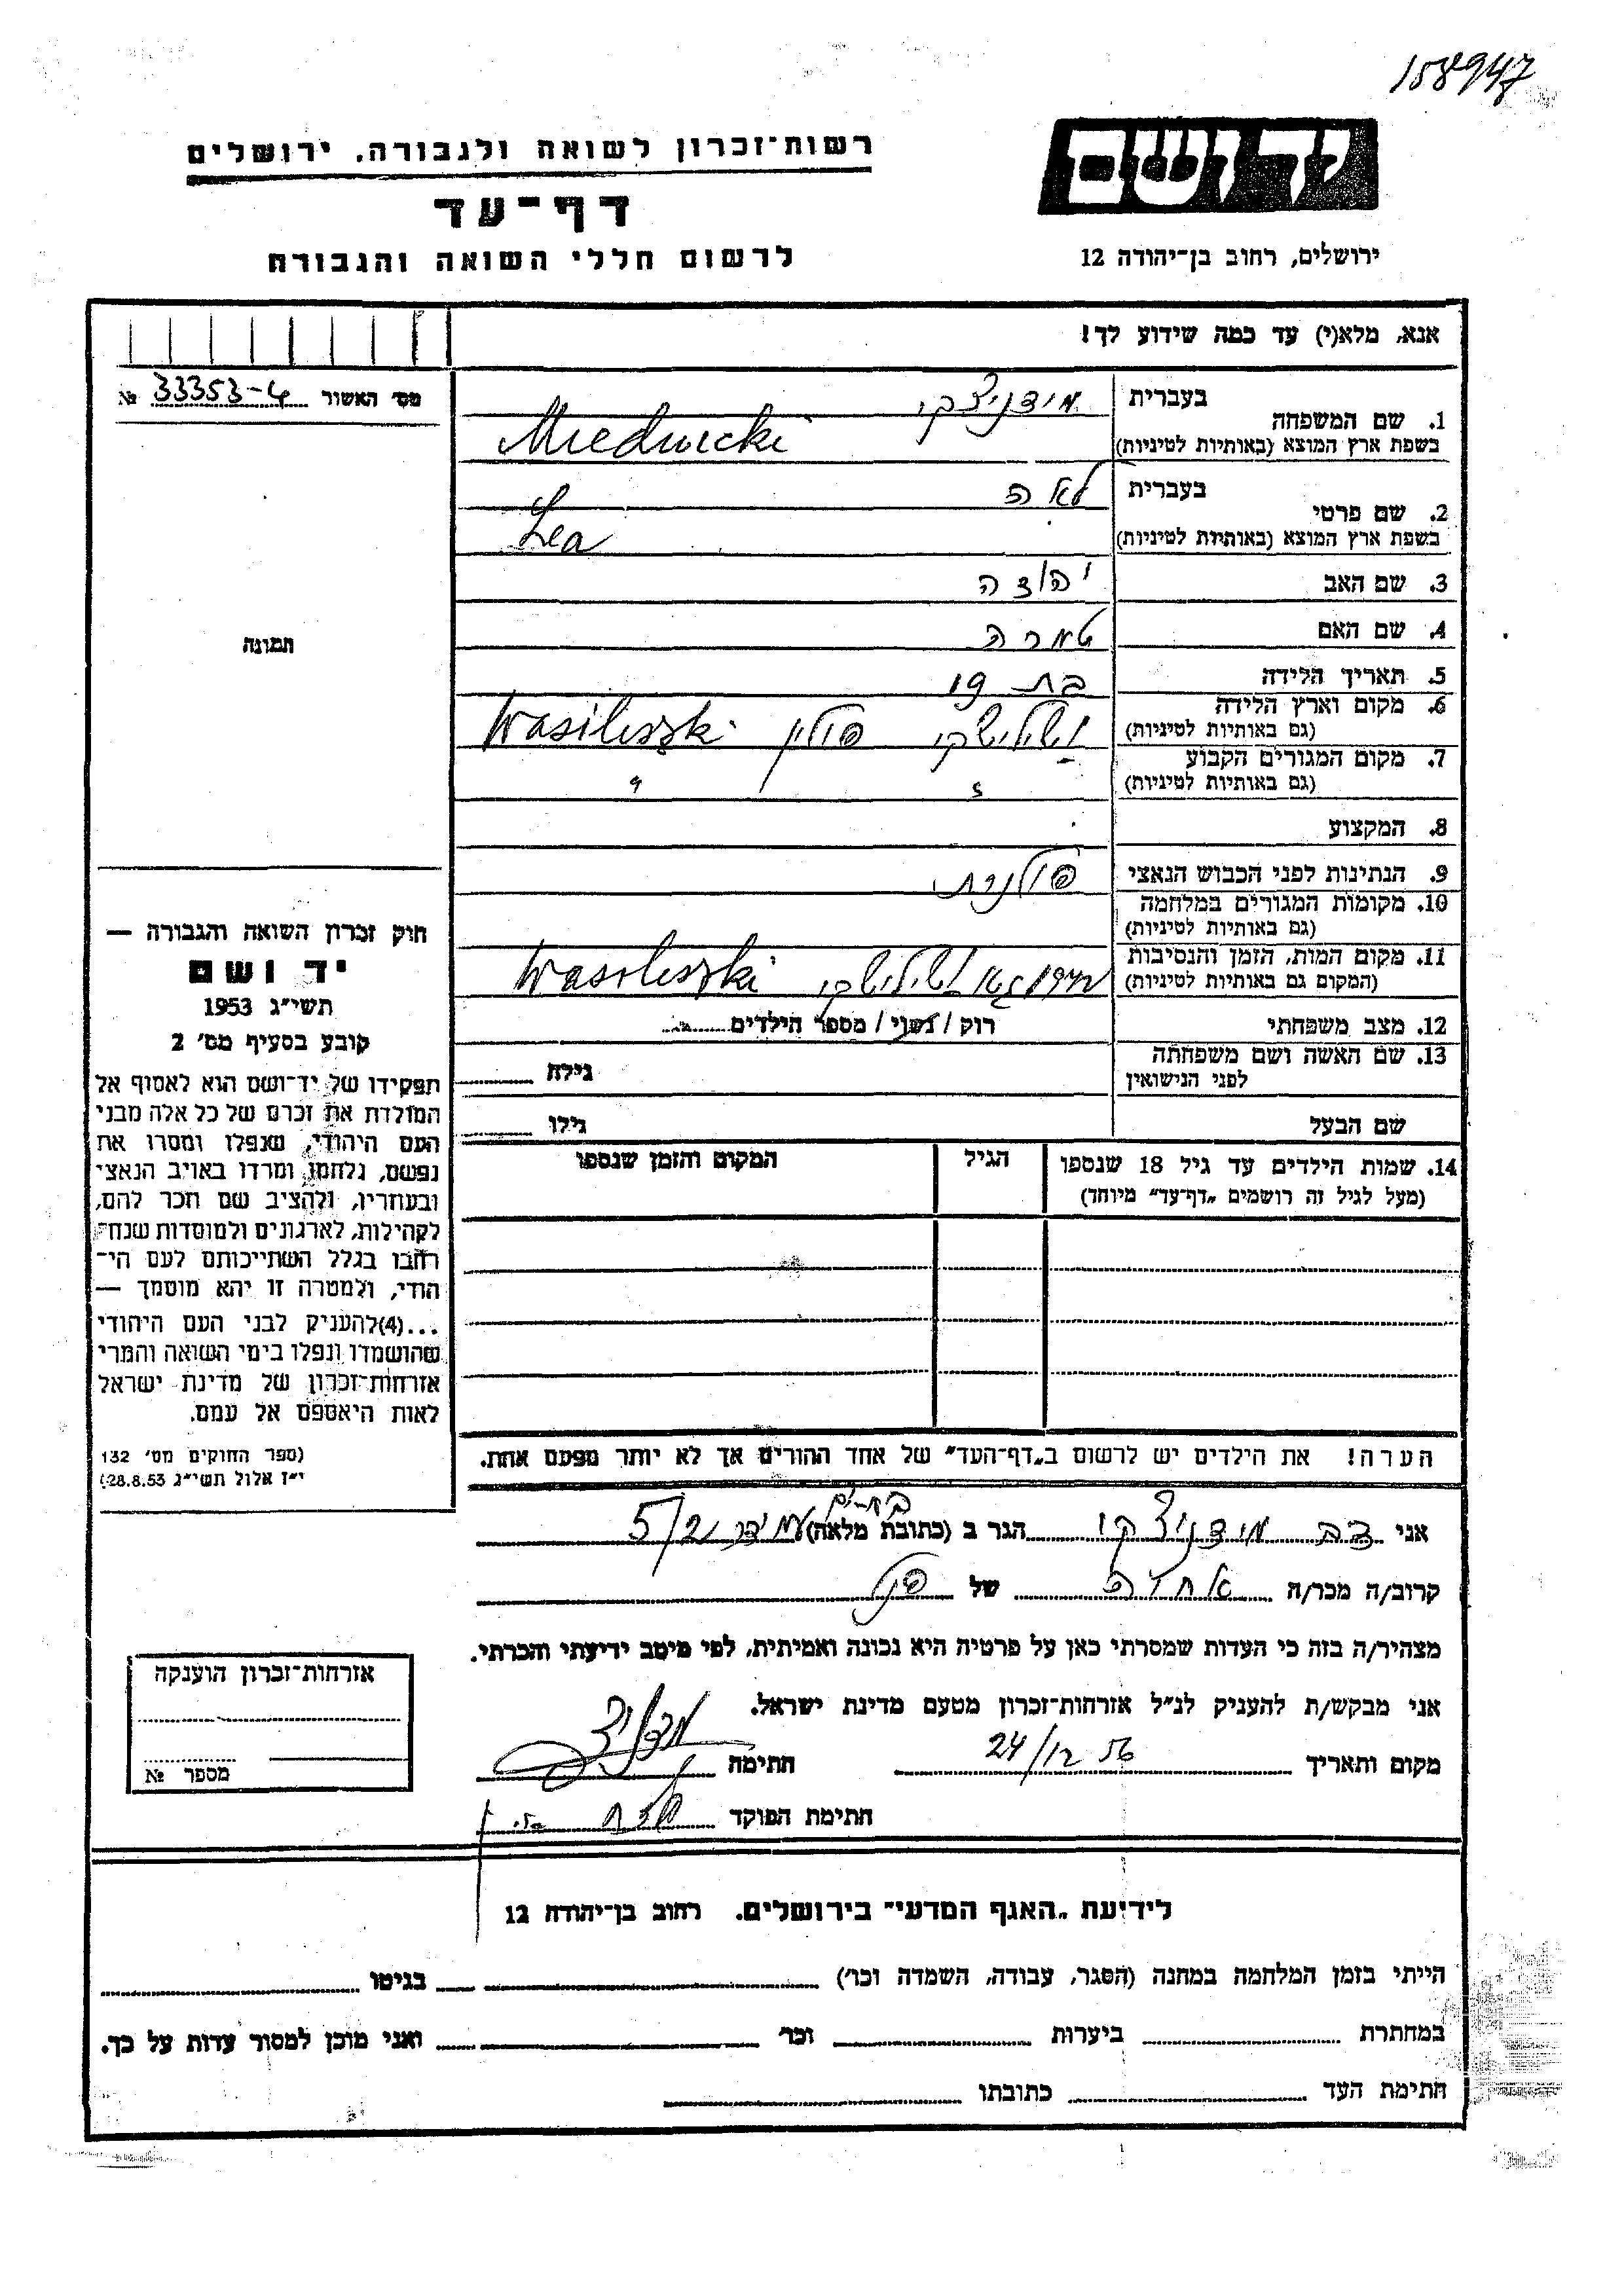 158947
יד ושם
רשות־זכרון לשואה ולגבורה, ירושלים
דף־עד
לרשום חללי השואה והגבורה
ירושלים, רחוב בן־יהודה 12
אנא, מלא(י) עד כמה שידוע לך!
מס׳ האשור 33353-4 №
תמונה
1. שם המשפחה בעברית מידניצקי
בשפת ארץ המוצא (באותיות לטיניות) Miednicki
2. שם פרטי בעברית לאה
בשפת ארץ המוצא (באותיות לטיניות) Lea
3. שם האב יהודה
4. שם האם
5. תאריך הלידה בת 19
6. מקום וארץ הלידה (גם באותיות לטיניות) ושילישקי פולין Wasiliszki
7. מקום המגורים הקבוע (גם באותיות לטיניות) " "
8. המקצוע
9. הנתינות לפני הכבוש הנאצי פולנית
10. מקומות המגורים במלחמה (גם באותיות לטיניות)
11. מקום המות, הזמן והנסיבות (המקום גם באותיות לטיניות) גטו ושילישקי Wasiliszki
12. מצב משפחתי רוק / נשוי / מספר הילדים
13. שם האשה ושם משפחתה לפני הנישואין גילה
שם הבעל גילו
14. שמות הילדים עד גיל 18 שנספו (מעל לגיל זה רושמים „דף־עד״ מיוחד) הגיל המקום והזמן שנספו
הערה! את הילדים יש לרשום ב„דף־העד״ של אחד ההורים אך לא יותר מפעם אחת.
חוק זכרון השואה והגבורה —
יד ושם
תשי״ג 1953
קובע בסעיף מס׳ 2
תפקידו של יד־ושם הוא לאסוף אל
המולדת את זכרם של כל אלה מבני
העם היהודי, שנפלו ומסרו את
נפשם, נלחמו ומרדו באויב הנאצי
ובעוזריו, ולהציב שם וזכר להם,
לקהילות, לארגונים ולמוסדות שנח־
רבו בגלל השתייכותם לעם הי־
הודי, ולמטרה זו יהא מוסמך —
...(4)להעניק לבני העם היהודי
שהושמדו ונפלו בימי השואה והמרי
אזרחות־זכרון של מדינת ישראל
לאות היאספם אל עמם.
(ספר החוקים מס׳ 132
י״ז אלול תשי״ג 28.8.53)
אני דב מידניצקי הגר ב (כתובת מלאה) 5/2
קרוב/ה מכר/ה של
מצהיר/ה בזה כי העדות שמסרתי כאן על פרטיה היא נכונה ואמיתית, לפי מיטב ידיעתי והכרתי.
אני מבקש/ת להעניק לנ״ל אזרחות־זכרון מטעם מדינת ישראל.
מקום ותאריך 24/12 56 חתימה
חתימת הפוקד
אזרחות־זכרון הוענקה
מספר №
לידיעת „האגף המדעי״ בירושלים. רחוב בן־יהודה 12
הייתי בזמן המלחמה במחנה (הסגר, עבודה, השמדה וכו׳) בגיטו
במחתרת ביערות וכו׳ ואני מוכן למסור עדות על כך.
חתימת העד כתובתו